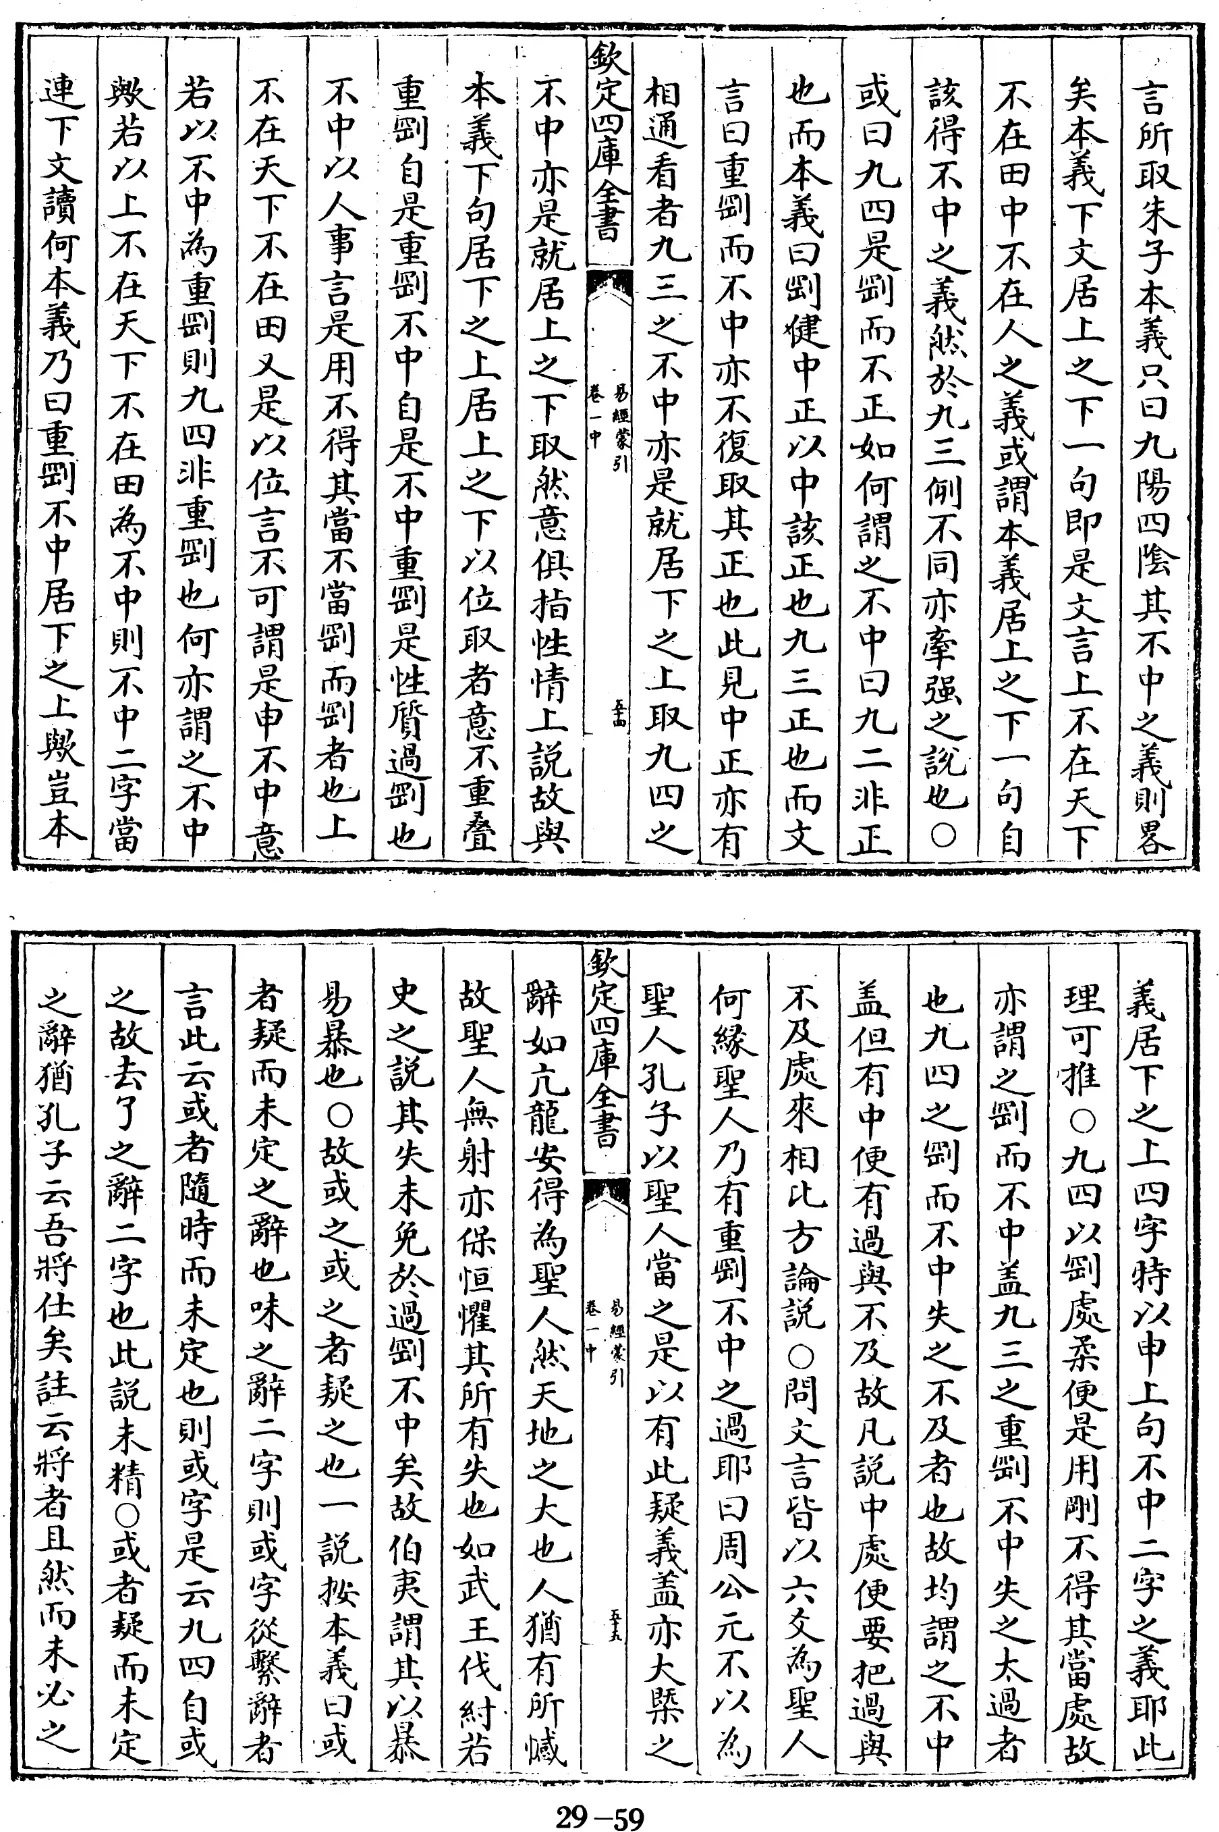 言所取朱子本義只曰九陽四陰其不中之義則畧
矣本義下文居上之下一句即是文言上不在天下
不在田中不在人之義或謂本義居上之下一句自
該得不中之義然於九三例不同亦牽强之說也○
或曰九四是剛而不正如何謂之不中曰九二非正
也而本義曰剛健中正以中該正也九三正也而文
言曰重剛而不中亦不復取其正也此見中正亦有
相通看者九三之不中亦是就居下之上取九四之
欽定四庫全書
易經蒙引
卷一中
五十四
不中亦是就居上之下取然意俱指性情上説故與
本義下句居下之上居上之下以位取者意不重疊
重剛自是重剛不中自是不中重剛是性質過剛也
不中以人事言是用不得其當不當剛而剛者也上
不在天下不在田又是以位言不可謂是申不中意
若以不中為重剛則九四非重剛也何亦謂之不中
歟若以上不在天下不在田為不中則不中二字當
連下文讀何本義乃曰重剛不中居下之上歟豈本
義居下之上四字特以申上句不中二字之義耶此
理可推○九四以剛處柔便是用剛不得其當處故
亦謂之剛而不中盖九三之重剛不中失之太過者
也九四之剛而不中失之不及者也故均謂之不中
盖但有中便有過與不及故凡説中處便要把過與
不及處來相比方論説○問文言皆以六爻為聖人
何緣聖人乃有重剛不中之過耶曰周公元不以為
聖人孔子以聖人當之是以有此疑義盖亦大槩之
欽定四庫全書
易經蒙引
卷一中
五十五
辭如亢龍安得為聖人然天地之大也人猶有所憾
故聖人無射亦保恒懼其所有失也如武王伐紂若
史之説其失未免於過剛不中矣故伯夷謂其以暴
易暴也○故或之或之者疑之也一説按本義曰或
者疑而未定之辭也味之辭二字則或字從繫辭者
言此云或者隨時而未定也則或字是云九四自或
之故去了之辭二字也此説未精○或者疑而未定
之辭猶孔子云吾將仕矣註云將者且然而未必之
29-59